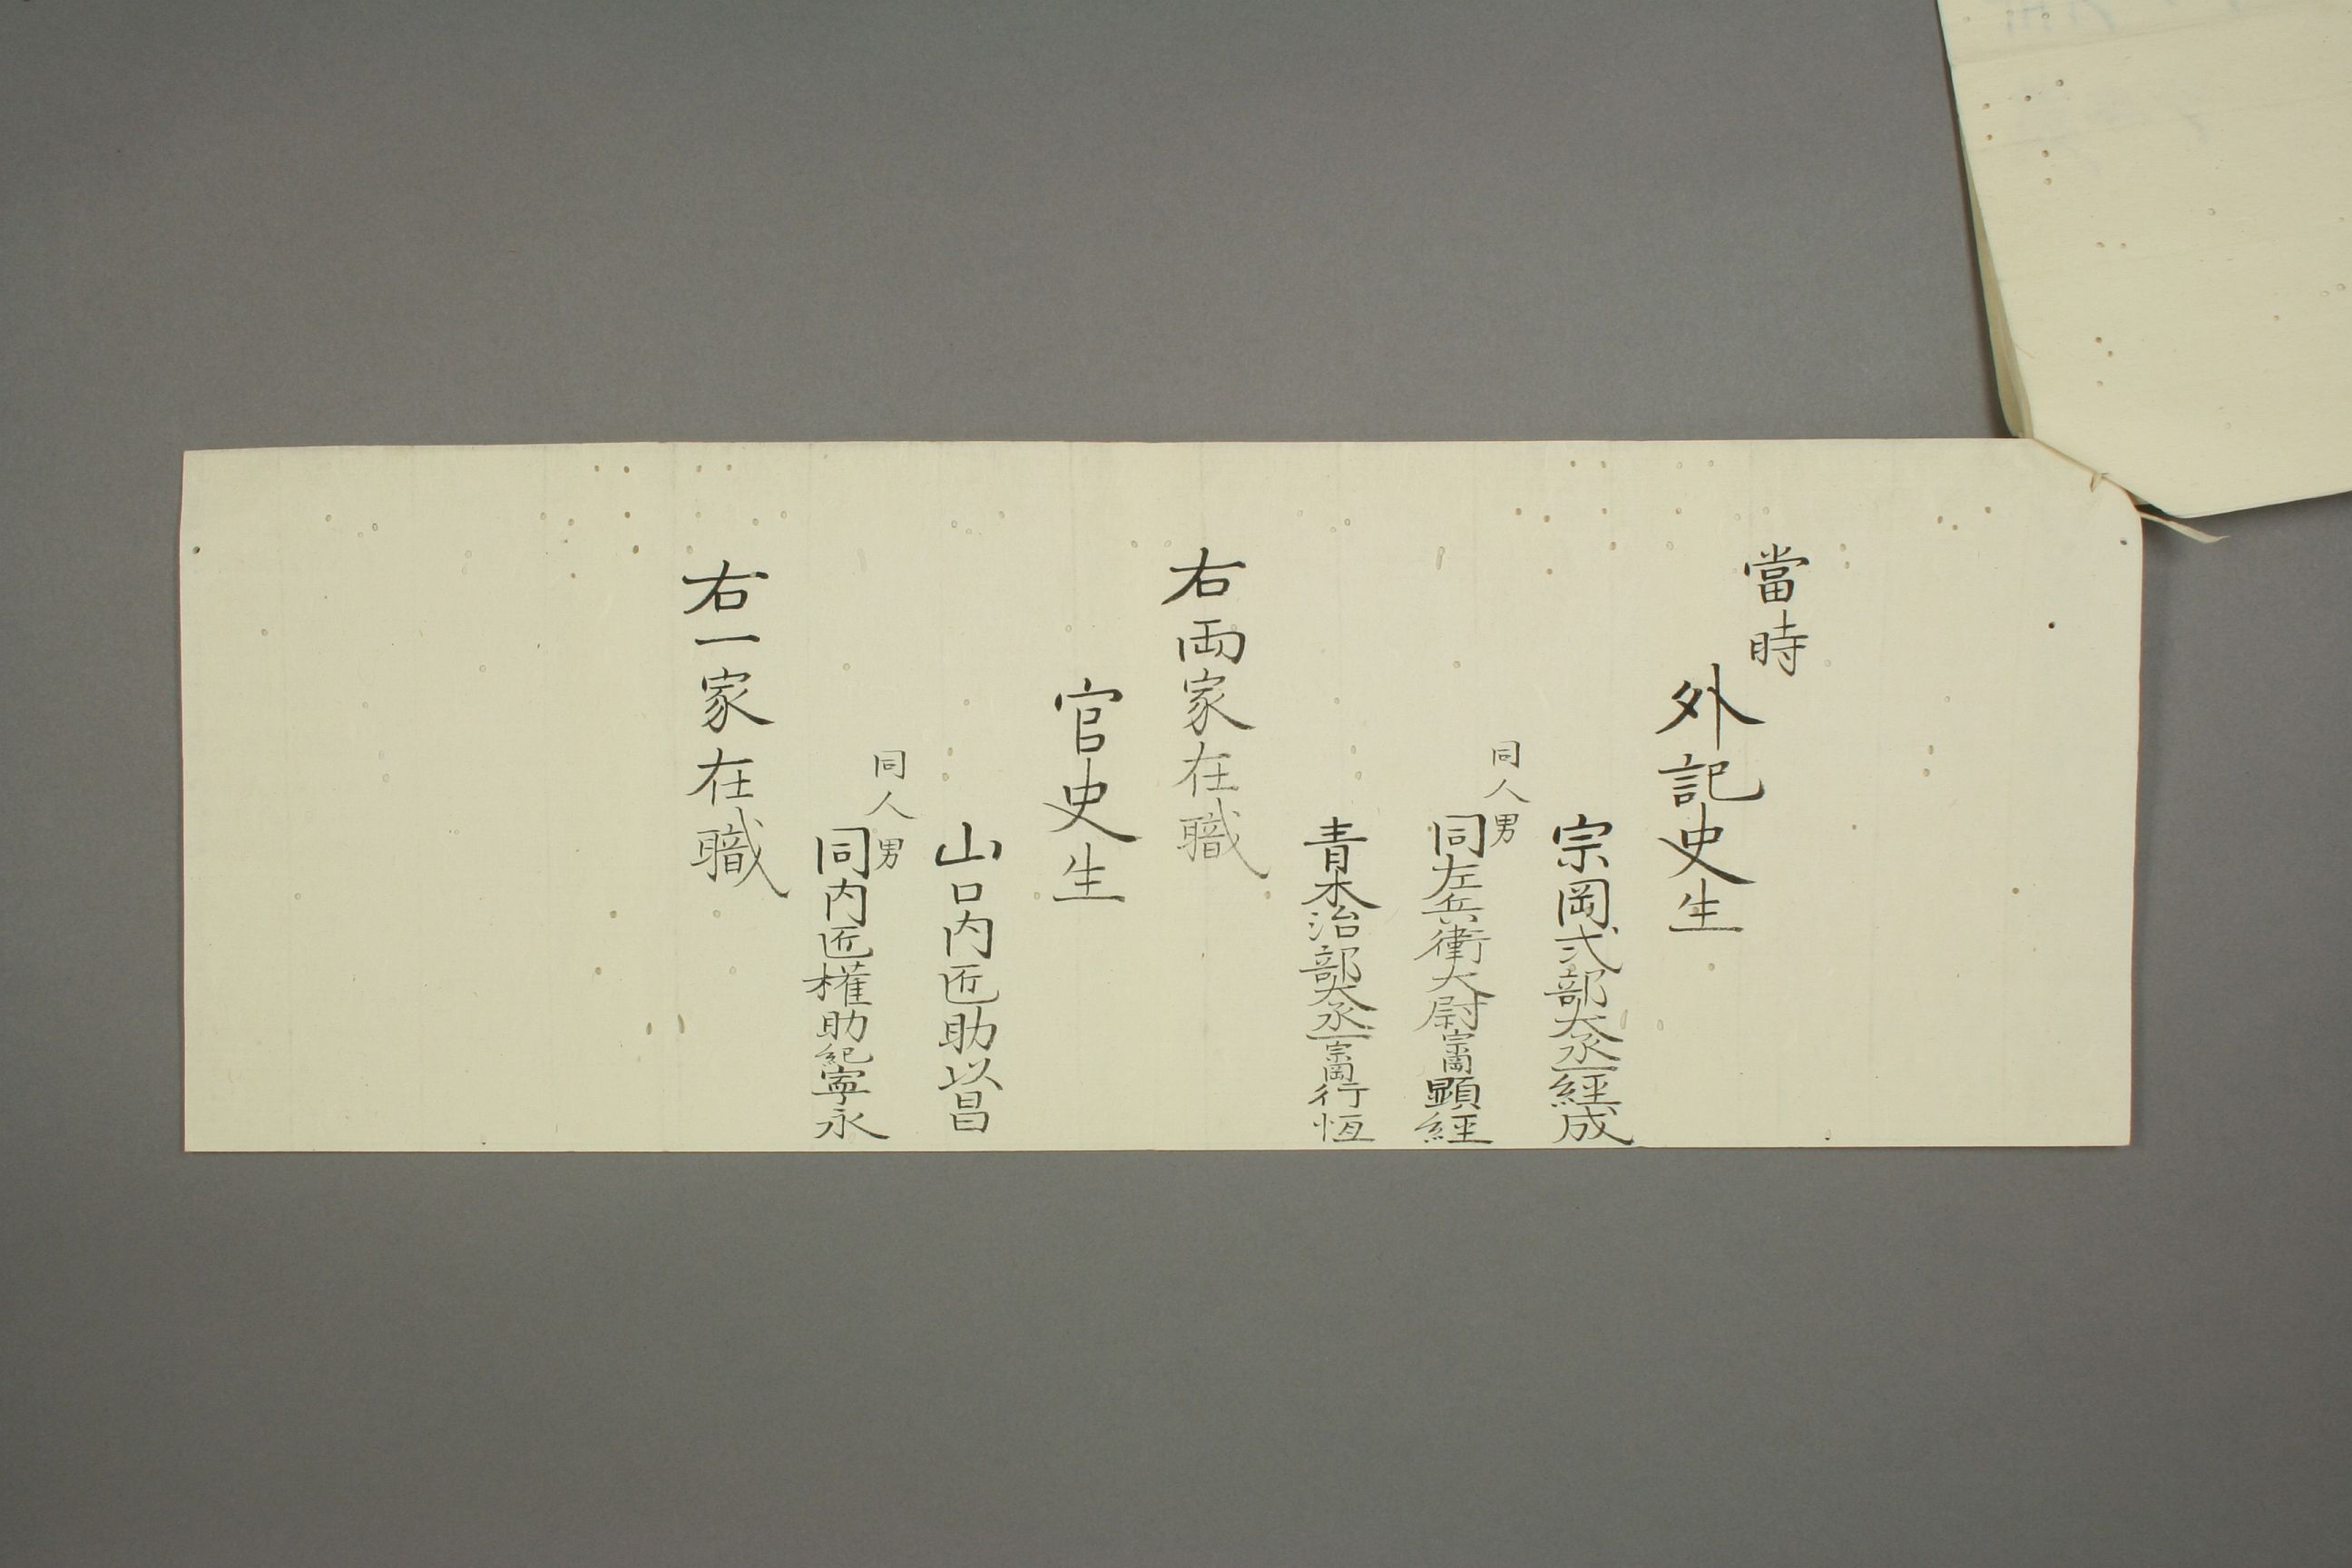 當時
外記史生
宗岡式部大丞経成
同人男
同左兵衛大尉宗岡顕経
青木治部大丞宗岡行恆
右両家在職
官史生
山口内匠助以昌
同人男
同内匠権助紀寧永
右一家在職